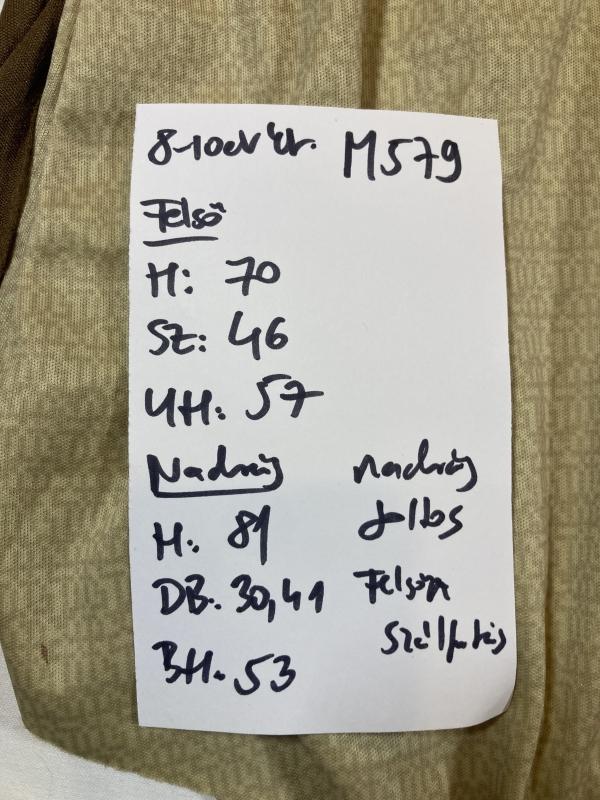 8-10 év kr. M579
Felső
H: 70
SZ: 46
UH: 57
Nadrág
H: 81
DB: 30,41
BH: 53
nadrág
foltos
Felsőn
szálfutás